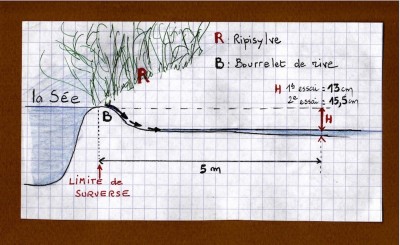 R : Ripisylve
B : Bourrelet de rive
H 1er essai = 13 cm
2e essai = 15,5 cm
la Sée
R
B
H
5 m
LIMITE de
SURVERSE